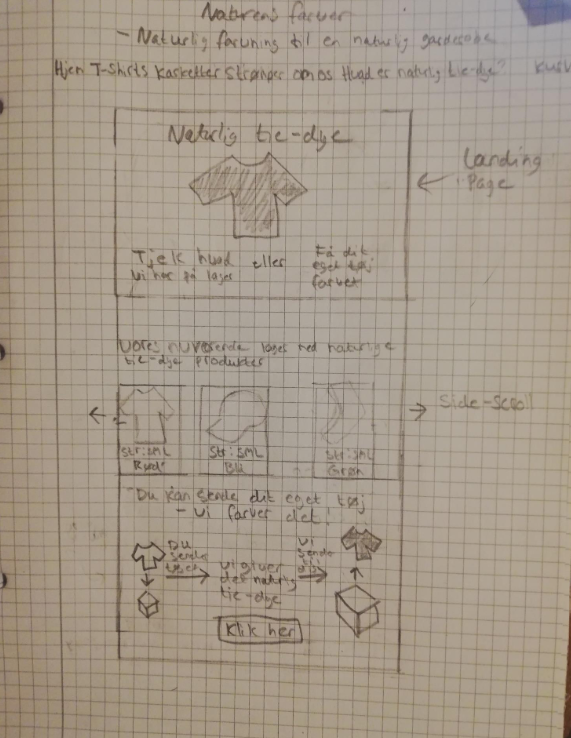 Naturens farver
- Naturlig farvning til en naturlig garderobe
Hjem T-Shirts Kasketter Strømper om os Hvad er naturlig tie-dye? Kurv
Naturlig tie-dye
Landing
Page
Tjek hvad eller
vi har på lager
Få dit
eget tøj
farvet
Vores nuværende lager med naturlige
tie-dye produkter
Side-scroll
Str: SML
Rød
Str: SML
Blå
Str: SML
Grøn
Du kan sende dit eget tøj
- vi farver det!
Du
sender
vi giver
det naturlig
tie-dye
vi
sender
Klik her